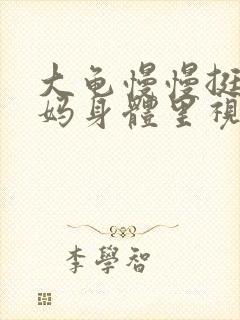 大龟慢慢挺
妈身體里視
李學智